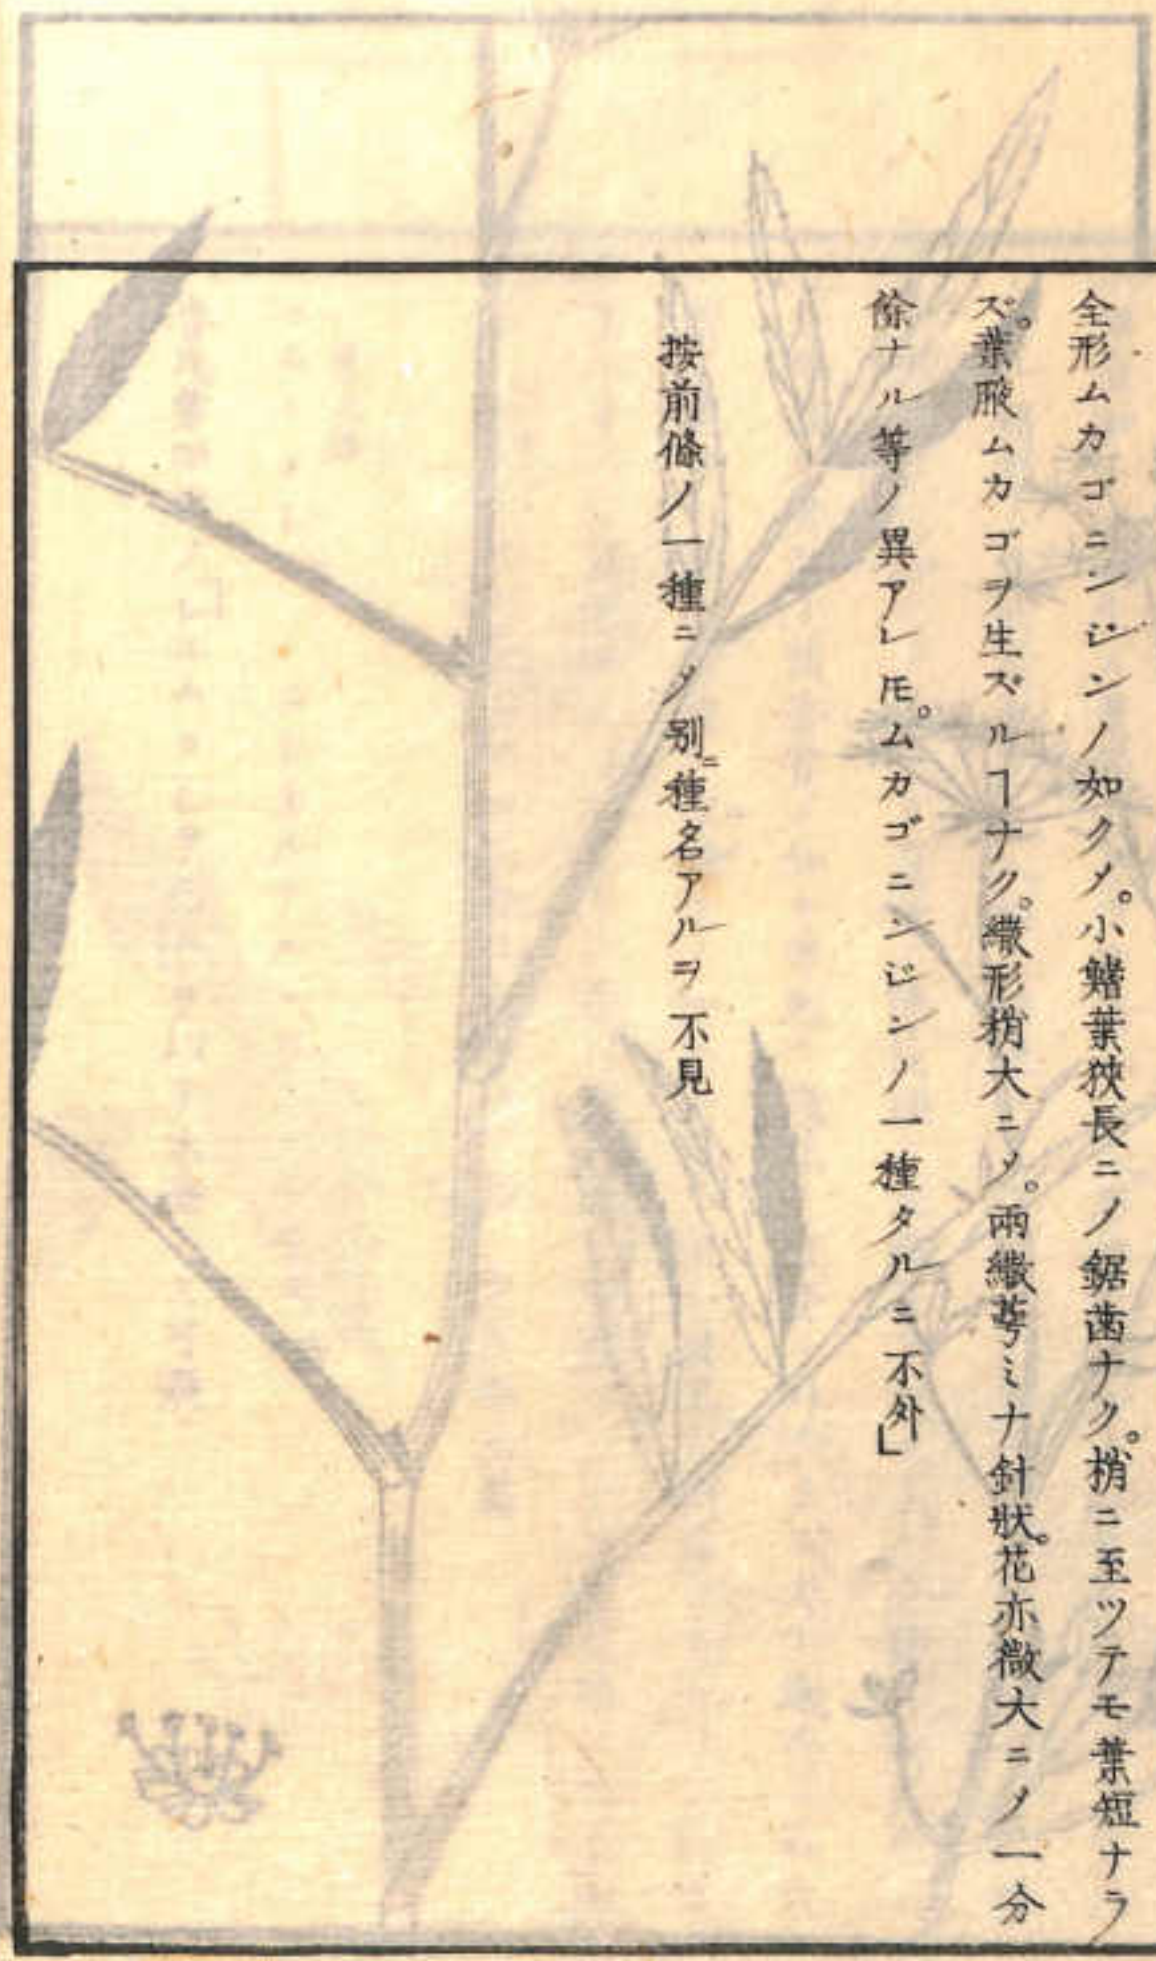 全形ムカゴニンジンノ如クメ。小鰭葉狹長ニメ鋸齒ナク。梢ニ至ツテモ葉短ナラ
ズ。葉腋ムカゴヲ生ズルヿナク。繖形稍大ニメ。兩繖萼ミナ針狀。花亦微大ニメ一分
餘ナル等ノ異アレ𪜈。ムカゴニンジンノ一種タルニ不外」
按前條ノ一種ニメ別ニ種名アルヲ不見